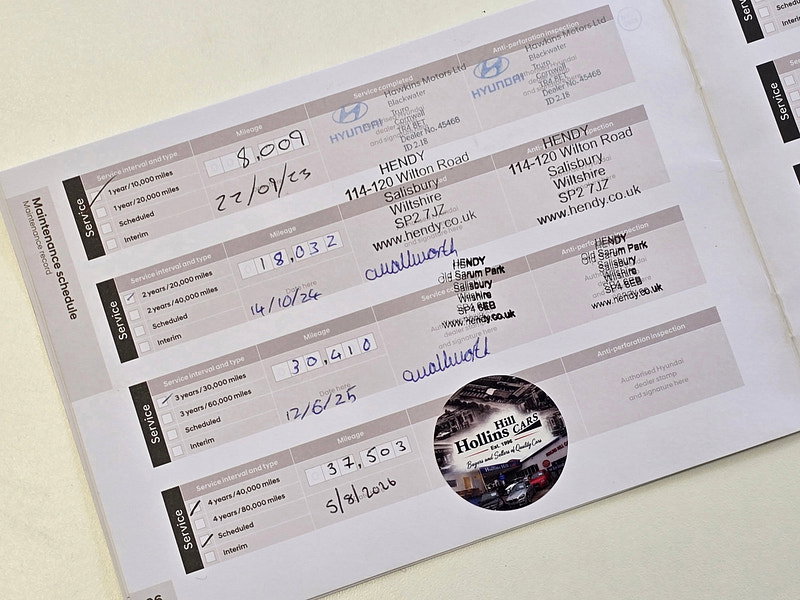 Maintenance schedule
Maintenance record
Service
Service interval and type
1 year/10,000 miles
1 year/20,000 miles
Scheduled
Interim
Mileage
8,009
22/09/23
Service completed
HYUNDAI
Hawkins Motors Ltd
Blackwater
Truro
Cornwall
TR4 8ET
Dealer No. 45466
ID 2.18
Anti-perforation inspection
HYUNDAI
Hawkins Motors Ltd
Blackwater
Truro
Cornwall
TR4 8ET
Dealer No. 45466
ID 2.18
Service
Service interval and type
2 years/20,000 miles
2 years/40,000 miles
Scheduled
Interim
Mileage
18,032
Date here
14/10/24
HENDY
114-120 Wilton Road
Salisbury
Wiltshire
SP2 7JZ
www.hendy.co.uk
HENDY
114-120 Wilton Road
Salisbury
Wiltshire
SP2 7JZ
www.hendy.co.uk
Service
Service interval and type
3 years/30,000 miles
3 years/60,000 miles
Scheduled
Interim
Mileage
30,410
Date here
12/6/25
HENDY
Old Sarum Park
Salisbury
Wilshire
SP4 6EB
www.hendy.co.uk
HENDY
Old Sarum Park
Salisbury
Wilshire
SP4 6EB
www.hendy.co.uk
Service
Service interval and type
4 years/40,000 miles
4 years/80,000 miles
Scheduled
Interim
Mileage
37,503
5/8/2026
Hill
Hollins CARS
Est. 1996
Buyers and Sellers of Quality Cars
Anti-perforation inspection
Authorised Hyundai
dealer stamp
and signature here
Service
Service